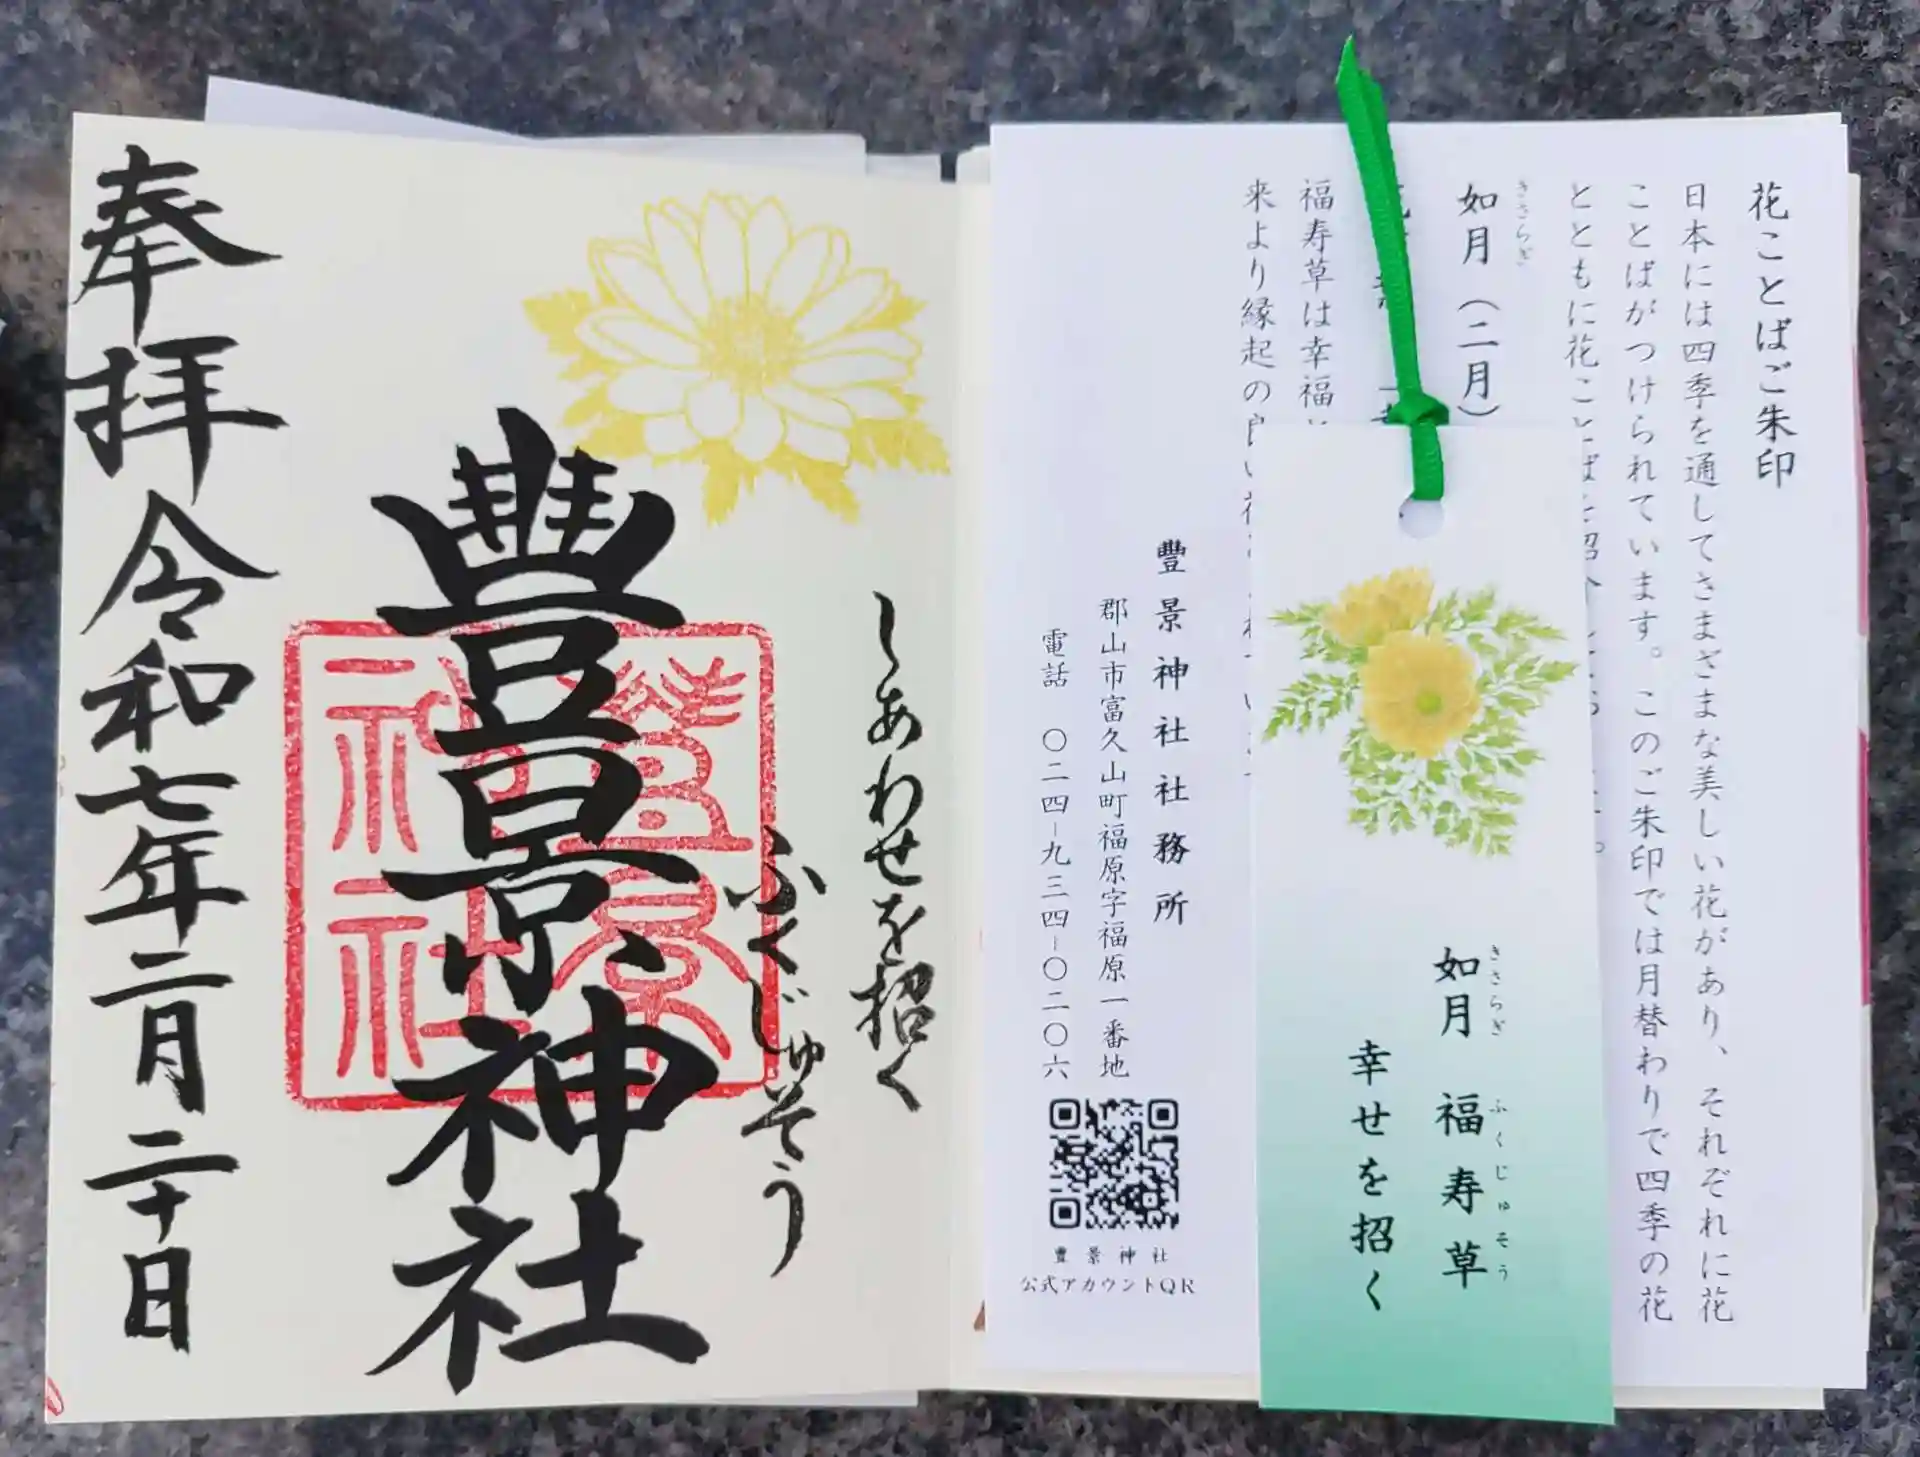 花ことばご朱印
日本には四季を通してさまざまな美しい花があり、それぞれに花
ことばがつけられています。このご朱印では月替わりで四季の花
とともに花ことば
きさらぎ
如月(二月)
福寿草は幸福
来より縁起の良い花
豊景神社社務所
郡山市富久山町福原字福原一番地
電話 〇二四-九三四-〇二〇六
豊景神社
公式アカウントQR
きさらぎ ふくじゅそう
如月 福寿草
幸せを招く
しあわせを招く
ふくじゅそう
豊景神社
豊景
神社
奉拝 令和七年二月二十日